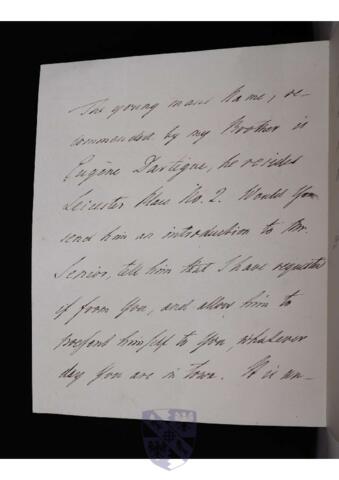 The young mans Name, re-
commended by my Brother is
Eugène Dartigue, he resides
Leicester Place No. 2. Would You
send him an introduction to Mr.
Senior, tell him that I have requested
it from You, and allow him to
present himself to You, whatever
day You are in Town. It is un-